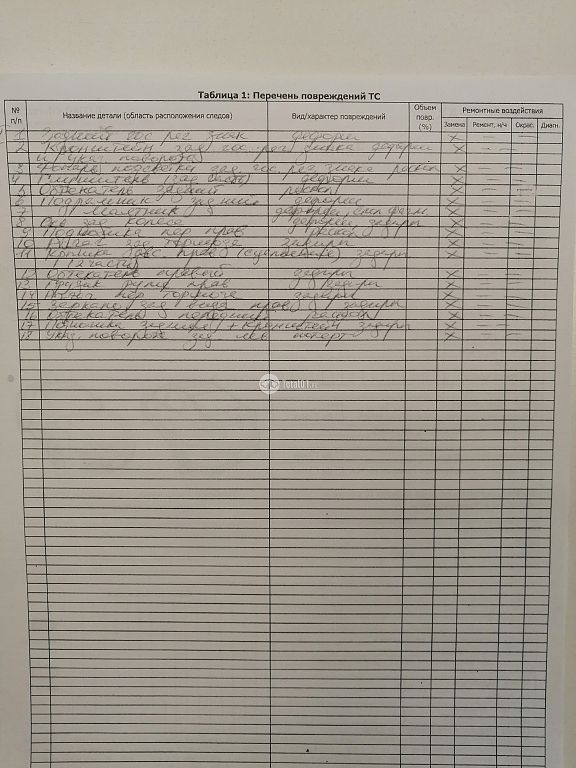 Таблица 1: Перечень повреждений ТС
№ п/п Название детали (область расположения следов) Вид/характер повреждений Объем повр. (%) Ремонтные воздействия
Замена Ремонт, н/ч Окрас. Диагн.
1 Задний гос рег знак деформ X
2 Кронштейн зад гос. рег знака деформ X
и указ. поворота
3 Фонарь подсветки зад гос. рег знака раскол X
4 деформ X
5 Обтекатель задний раскол X
6 Подрамник задний деформ X
7 Маятник X
8 Ось зад колеса деформ задиры X
9 Подножка пер прав X
10 Рычаг зад тормоза задиры X
11 Крышка прав задиры X
(2 части)
12 Обтекатель правый задиры X
13 Грузик руля прав задиры X
14 Рычаг пер тормоза задиры X
15 Зеркало зад вида прав задиры X
16 Обтекатель передний X
17 Подножка задняя + кронштейн задиры X
18 Указ. поворота зад лев X
Total01.ru